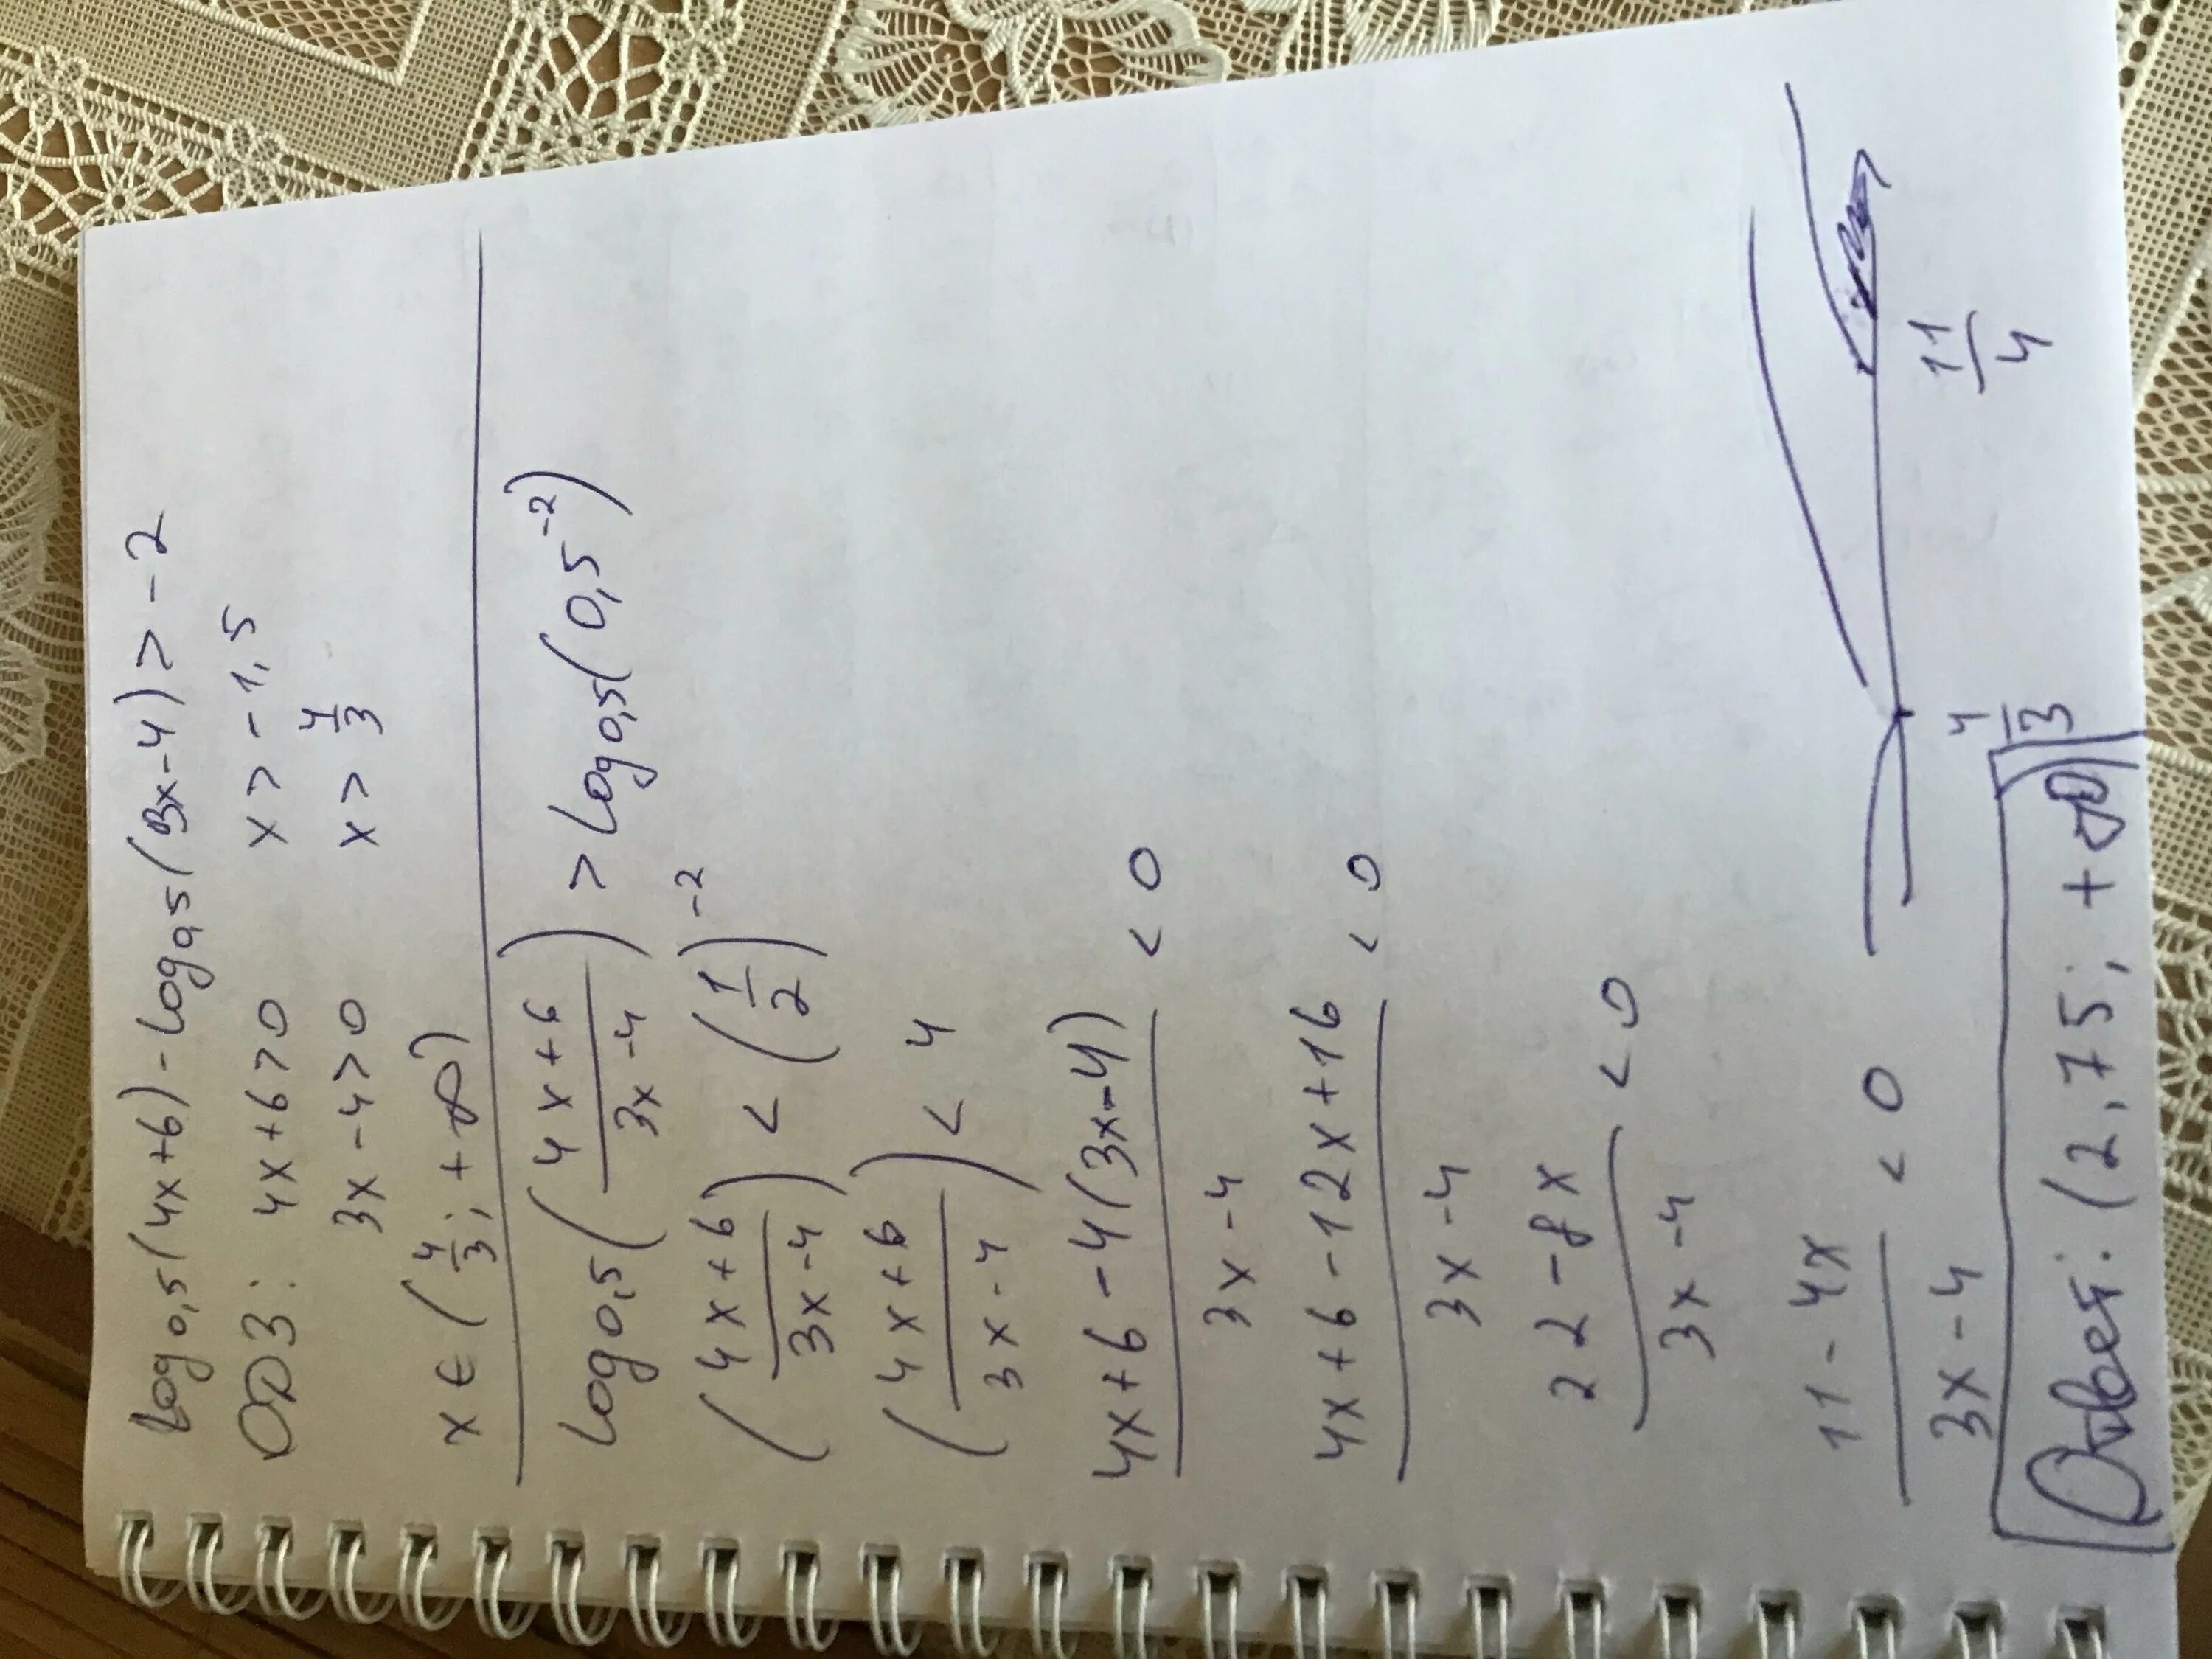 log0,5(4x+6)-log0,5(3x-4)>-2
ОДЗ: 4x+6>0 x>-1,5
3x-4>0 x>4/3
x∈(4/3;+∞)
log0,5((4x+6)/(3x-4))>log0,5(0,5^-2)
((4x+6)/(3x-4))<(1/2)^-2
((4x+6)/(3x-4))<4
(4x+6-4(3x-4))/(3x-4)<0
(4x+6-12x+16)/(3x-4)<0
(22-8x)/(3x-4)<0
(11-4x)/(3x-4)<0
4/3 11/4
Ответ: (2,75;+∞)